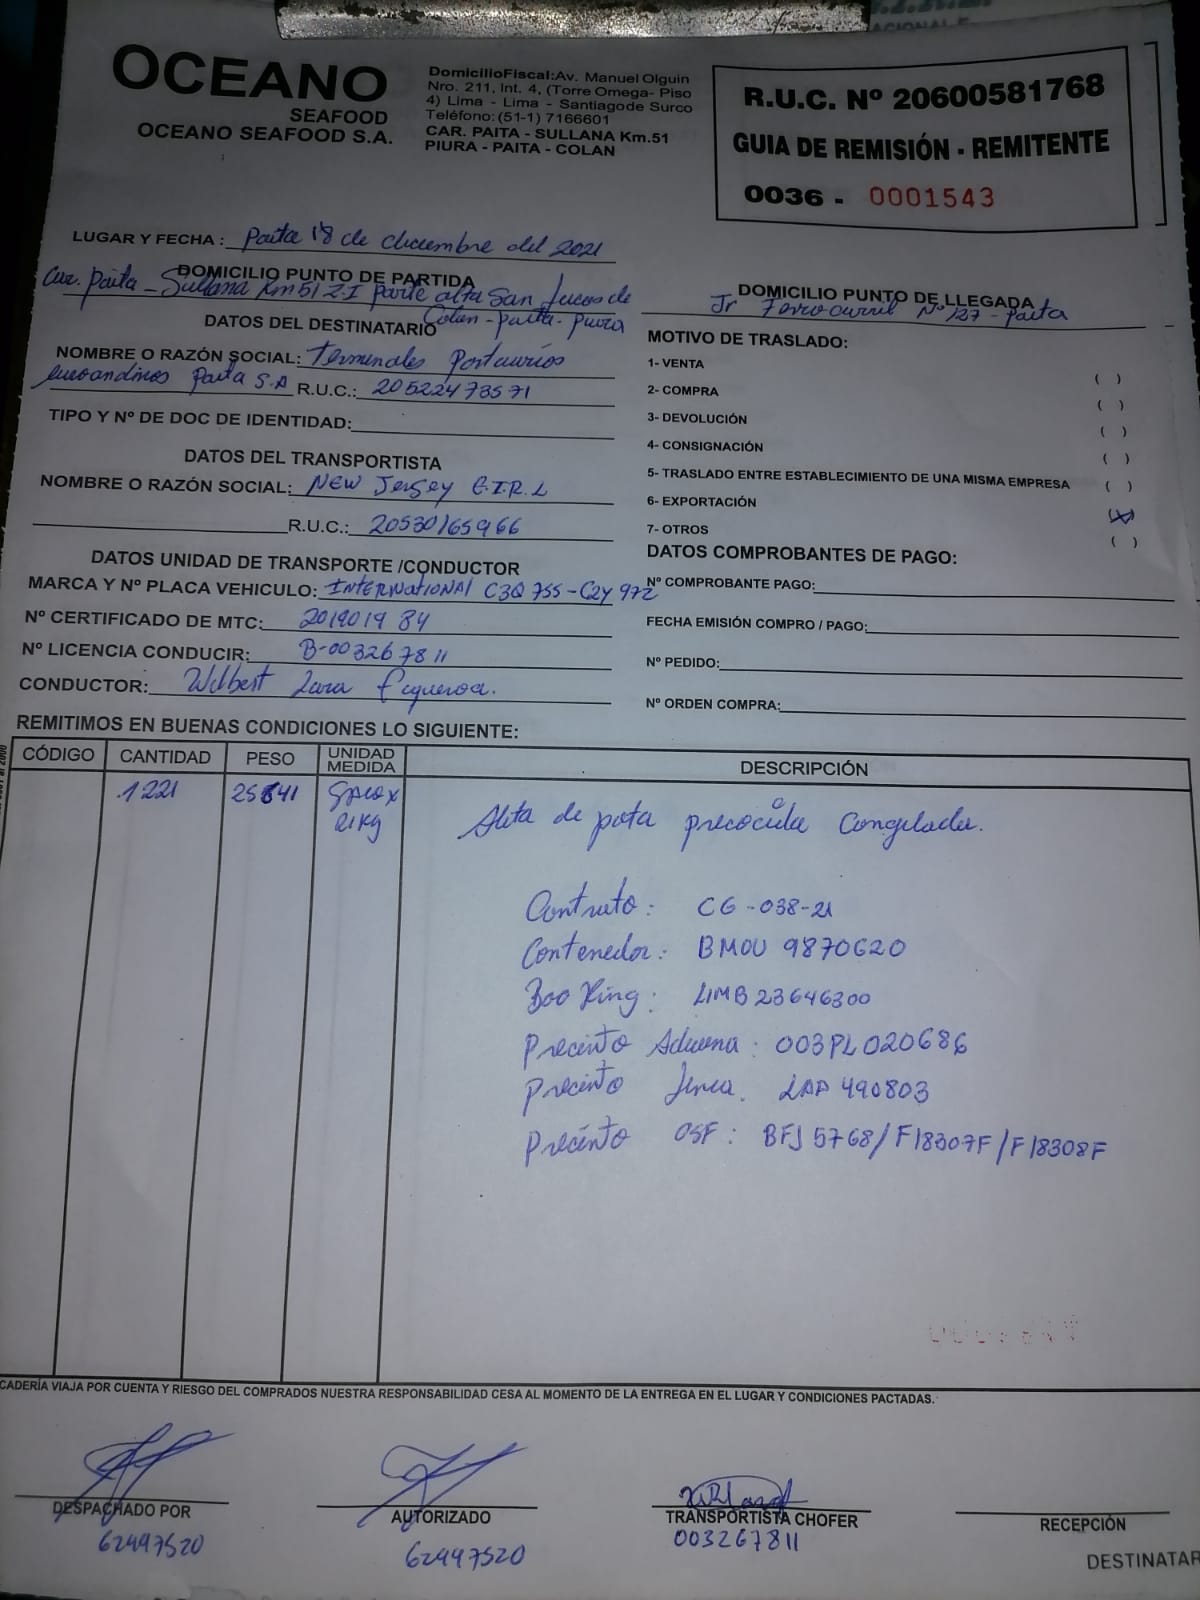 OCEANO
SEAFOOD
OCEANO SEAFOOD S.A.
DomicilioFiscal:Av. Manuel Olguin
Nro. 211, Int. 4, (Torre Omega- Piso
4) Lima - Lima - Santiagode Surco
Teléfono: (51-1) 7166601
CAR. PAITA - SULLANA Km.51
PIURA - PAITA - COLAN
R.U.C. Nº 20600581768
GUIA DE REMISIÓN - REMITENTE
0036 - 0001543
LUGAR Y FECHA : Paita 18 de diciembre del 2021
DOMICILIO PUNTO DE PARTIDA
Car. Paita - Sullana Km 51 Z.I parte alta San Lucas de
Colan - paita - piura
DOMICILIO PUNTO DE LLEGADA
Jr Ferrocarril Nº 127 - Paita
DATOS DEL DESTINATARIO
NOMBRE O RAZÓN SOCIAL: Terminales Portuarios
euroandinos Paita S.A R.U.C.: 20522473571
TIPO Y Nº DE DOC DE IDENTIDAD:
DATOS DEL TRANSPORTISTA
NOMBRE O RAZÓN SOCIAL: NEW Jersey E.I.R.L
R.U.C.: 20530165966
DATOS UNIDAD DE TRANSPORTE /CONDUCTOR
MARCA Y Nº PLACA VEHICULO: INTERNATIONAL C3Q 755 - C2Y 972
Nº CERTIFICADO DE MTC: 201901984
Nº LICENCIA CONDUCIR: B-003267811
CONDUCTOR: Wilbert Lara Figueroa.
MOTIVO DE TRASLADO:
1- VENTA ( )
2- COMPRA ( )
3- DEVOLUCIÓN ( )
4- CONSIGNACIÓN ( )
5- TRASLADO ENTRE ESTABLECIMIENTO DE UNA MISMA EMPRESA ( )
6- EXPORTACIÓN (X)
7- OTROS ( )
DATOS COMPROBANTES DE PAGO:
Nº COMPROBANTE PAGO:
FECHA EMISIÓN COMPRO / PAGO:
Nº PEDIDO:
Nº ORDEN COMPRA:
REMITIMOS EN BUENAS CONDICIONES LO SIGUIENTE:
CÓDIGO CANTIDAD PESO UNIDAD MEDIDA DESCRIPCIÓN
1221 25641 Saco x
21Kg
Aleta de pota precocida Congelada.
Contrato: CG-038-21
Contenedor: BMOU 9870620
Booking: LIMB23646300
Precinto Aduana: 003PL020686
Precinto linea. LAA 490803
Precinto OSF: BFJ 5768/F18307F/F18308F
CADERÍA VIAJA POR CUENTA Y RIESGO DEL COMPRADOS NUESTRA RESPONSABILIDAD CESA AL MOMENTO DE LA ENTREGA EN EL LUGAR Y CONDICIONES PACTADAS.
DESPACHADO POR
62497520
AUTORIZADO
62497520
TRANSPORTISTA CHOFER
003267811
RECEPCIÓN
DESTINATAR